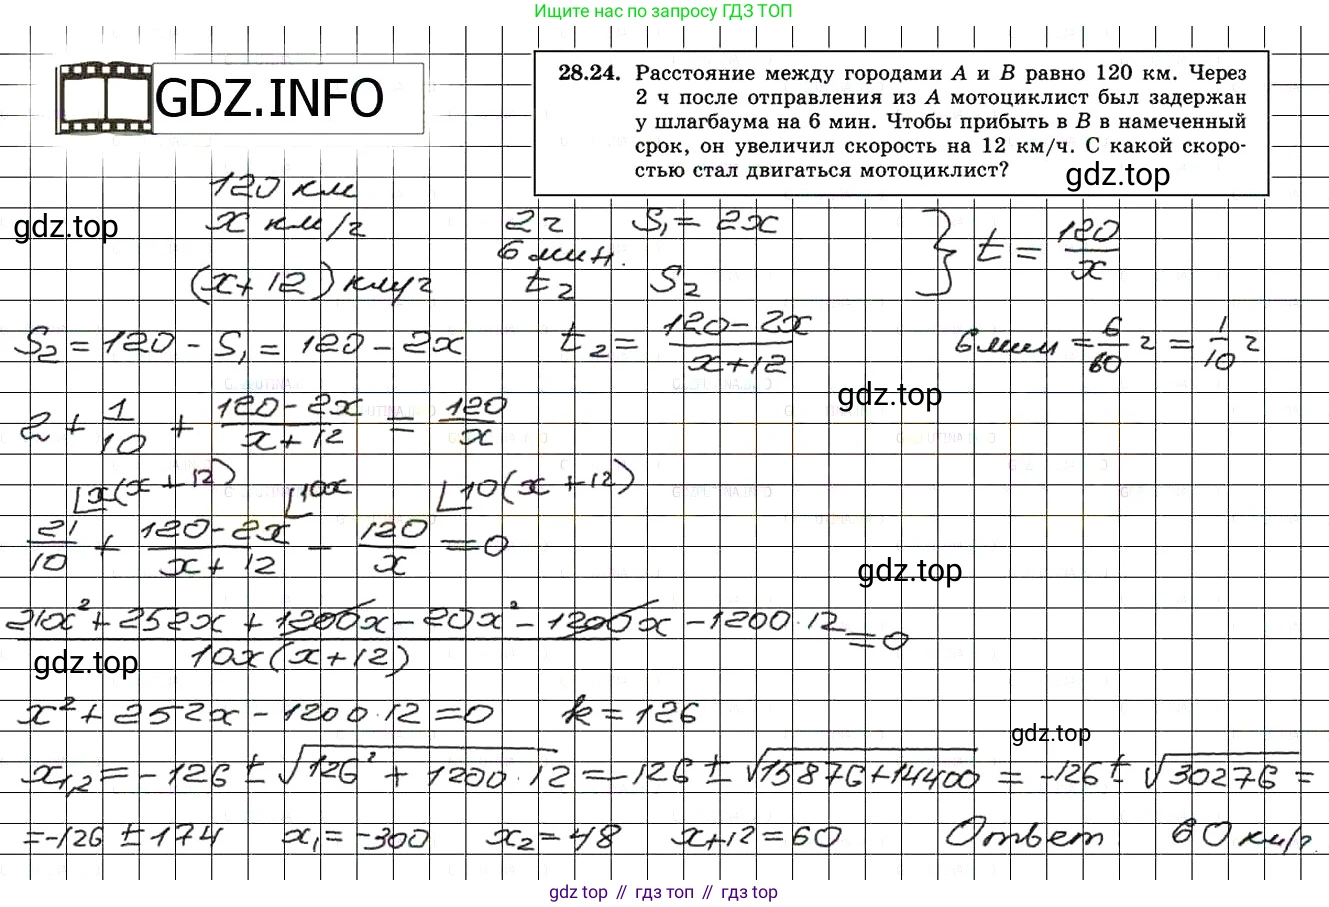 Ищите нас по запросу ГДЗ ТОП
GDZ.INFO
28.24. Расстояние между городами A и B равно 120 км. Через
2 ч после отправления из A мотоциклист был задержан
у шлагбаума на 6 мин. Чтобы прибыть в B в намеченный
срок, он увеличил скорость на 12 км/ч. С какой скоро-
стью стал двигаться мотоциклист?
gdz.top
120 км
gdz.top
x км/ч 2ч S₁ = 2x } t = 120/x
6 мин.
(x+12) км/ч t₂ S₂
S₂ = 120 - S₁ = 120 - 2x t₂ = (120-2x)/(x+12) 6 мин = 6/60 ч = 1/10 ч
gdz.top
2 + 1/10 + (120-2x)/(x+12) = 120/x
⌊x(x+12) ⌊10x ⌊10(x+12)
21/10 + (120-2x)/(x+12) - 120/x = 0
gdz.top
(21x² + 252x + 1200x - 20x² - 1200x - 1200·12)/(10x(x+12)) = 0
gdz.top
x² + 252x - 1200·12 = 0 k = 126
gdz.top
x₁,₂ = -126 ± √(126² + 1200·12) = -126 ± √(15876+14400) = -126 ± √30276 =
= -126 ± 174 x₁ = -300 x₂ = 48 x+12 = 60 Ответ 60 км/ч.
gdz top // гдз топ // гдз top